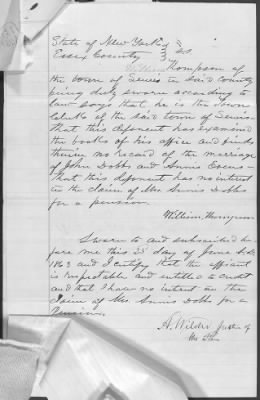 State of New York }
Essex County } SS
William Thompson of
the town of Lewis in said County
being duly sworn according to
law says that he is the Town
Clerk of the said town of Lewis
That this deponent has examined
the books of his office and finds
therein no record of the marriage
of John Dobbs and Annis
That this deponent has no interest
in the claim of Mrs Annis Dobbs
for a pension.
William Thompson
Sworn to and subscribed be
fore me this day of June A.D.
1863 and I certify that the affiant
is respectable and entitled to credit
and that I have no interest in the
Claim of Mrs Annis Dobbs for a
Pension.
A. Wilder Justice of
the